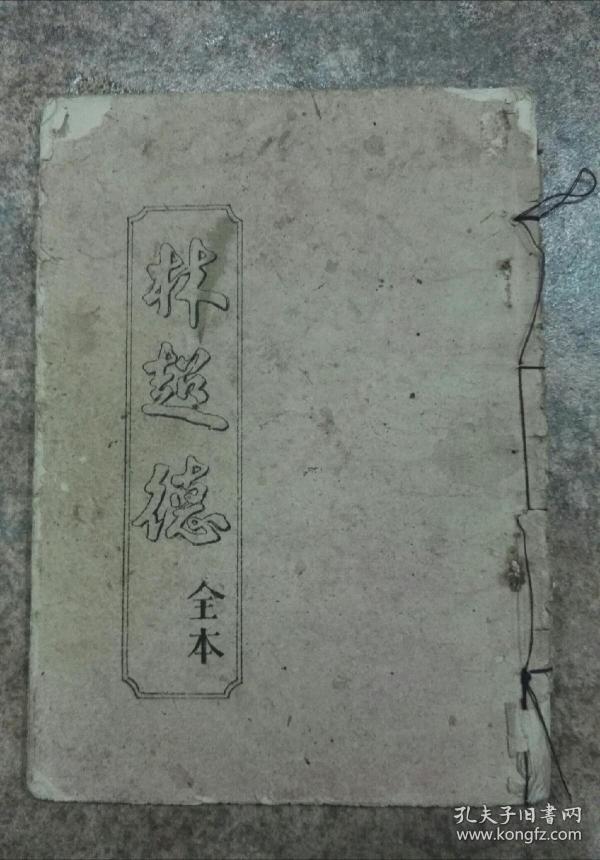 林超德
全本
孔夫子旧書网
www.kongfz.com